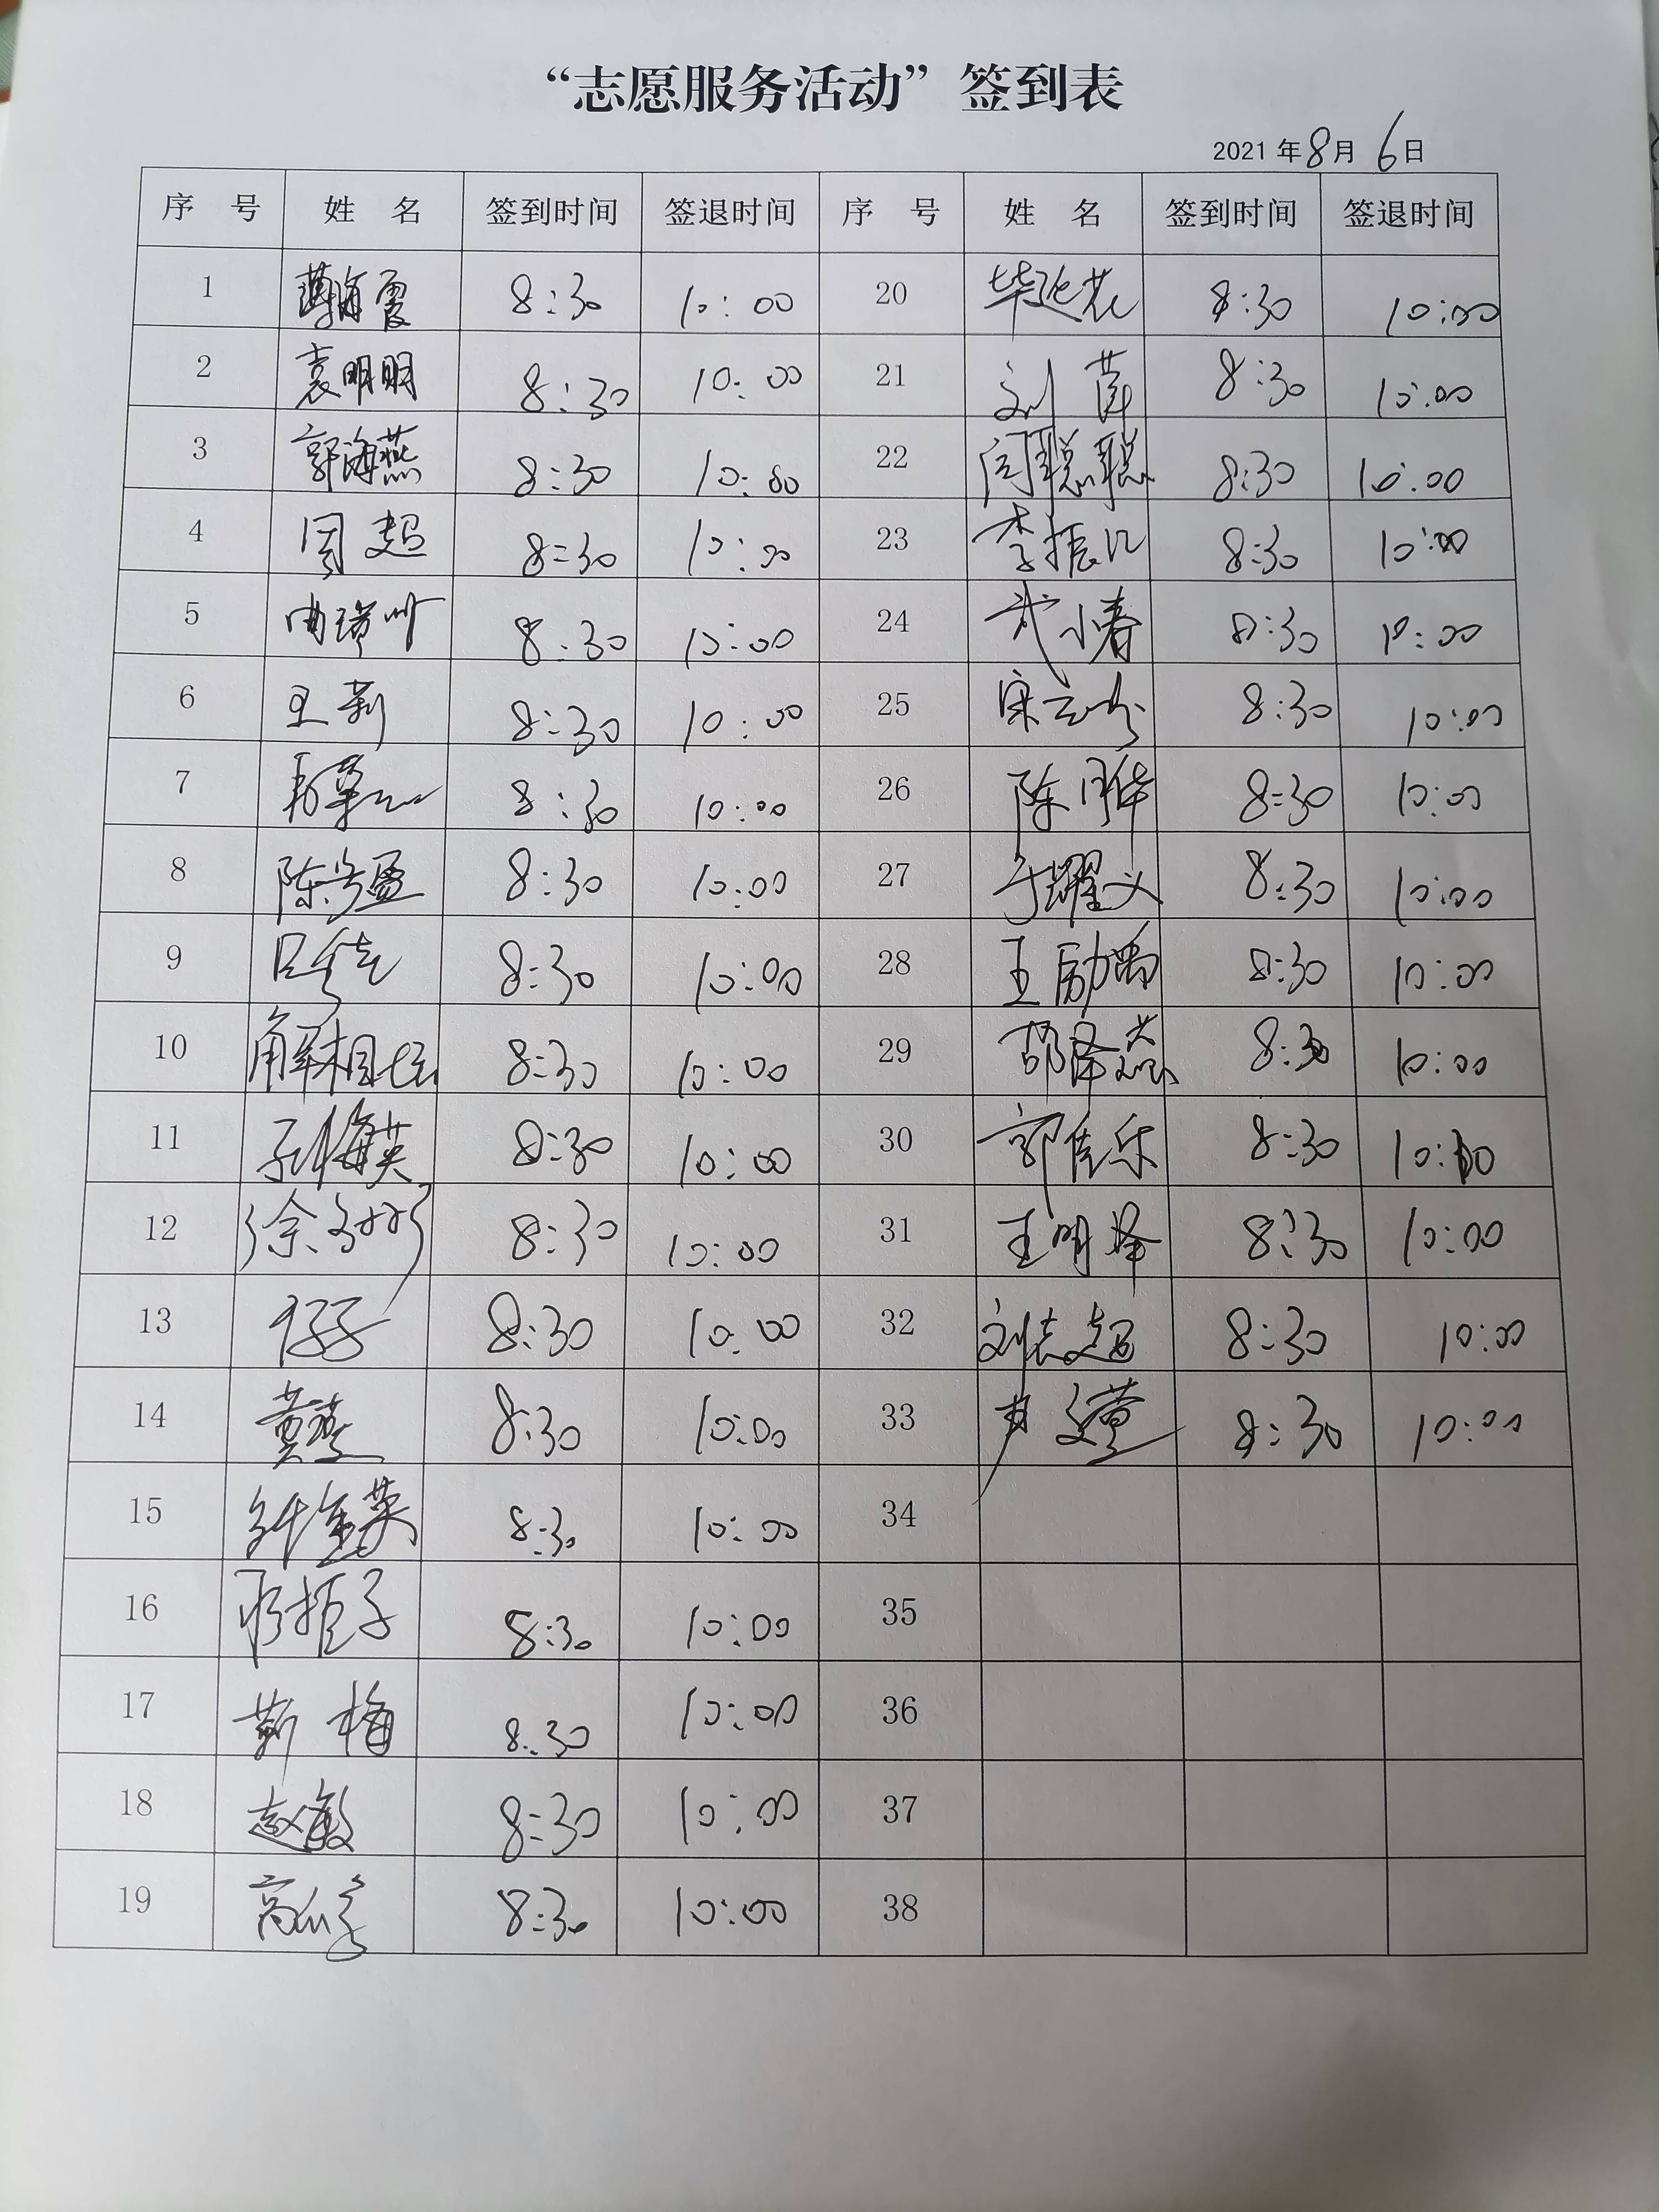 “志愿服务活动”签到表
2021年8月6日
序 号 姓 名 签到时间 签退时间 序 号 姓 名 签到时间 签退时间
1 8:30 10:00 20 毕延花 8:30 10:00
2 袁明明 8:30 10:00 21 刘 8:30 10:00
3 郭海燕 8:30 10:00 22 闫聪聪 8:30 10:00
4 周超 8:30 10:00 23 李振江 8:30 10:00
5 曲瑞 8:30 10:00 24 武小春 8:30 10:00
6 王莉 8:30 10:00 25 宋云 8:30 10:00
7 8:30 10:00 26 陈 8:30 10:00
8 陈 8:30 10:00 27 于耀义 8:30 10:00
9 吕 8:30 10:00 28 王励 8:30 10:00
10 解相 8:30 10:00 29 胡泽 8:30 10:00
11 孙梅英 8:30 10:00 30 郭佳乐 8:30 10:00
12 徐 8:30 10:00 31 王明泽 8:30 10:00
13 8:30 10:00 32 刘志超 8:30 10:00
14 黄燕 8:30 10:00 33 8:30 10:00
15 8:30 10:00 34
16 8:30 10:00 35
17 靳梅 8:30 10:00 36
18 赵敏 8:30 10:00 37
19 高 8:30 10:00 38